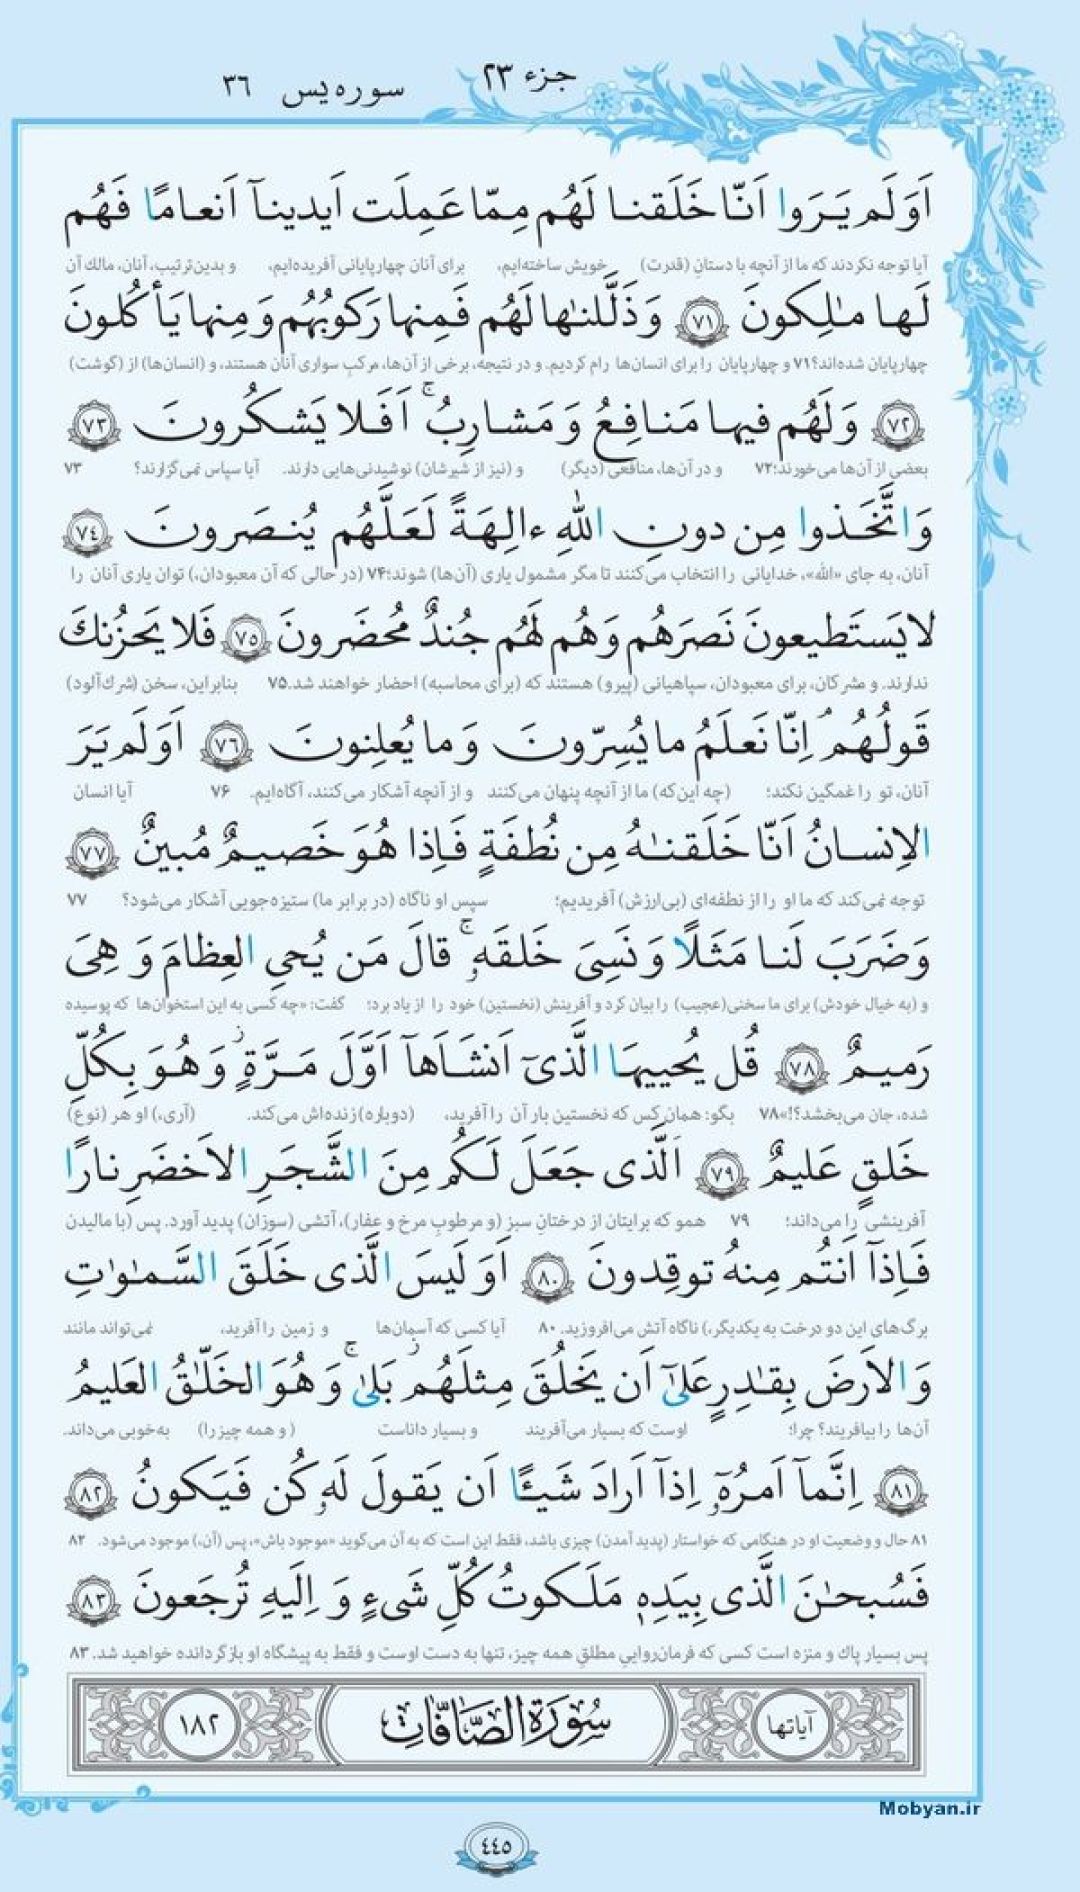 جزء ۲۳
سوره یس ۳۶
اَوَلَم یَرَوا اَنّا خَلَقنا لَهُم مِمّا عَمِلَت اَیدینآ اَنعامًا فَهُم
آیا توجه نکردند که ما از آنچه با دستانِ (قدرت) خویش ساخته‌ایم، برای آنان چهارپایانی آفریده‌ایم، و بدین‌ترتیب، آنان، مالك آن
لَها مٰلِکونَ ﴿۷۱﴾ وَ ذَلَّلنٰها لَهُم فَمِنها رَکوبُهُم وَ مِنها یَأکُلونَ
چهارپایان شده‌اند؟۷۱ و چهارپایان را برای انسان‌ها رام کردیم. و در نتیجه، برخی از آن‌ها، مرکبِ سواری آنان هستند، و (انسان‌ها) از (گوشت)
﴿۷۲﴾ وَ لَهُم فیها مَنافِعُ وَ مَشارِبُ ۚ اَفَلا یَشکُرونَ ﴿۷۳﴾
بعضی از آن‌ها می‌خورند؛۷۲ و در آن‌ها، منافعی (دیگر) و (نیز از شیرشان) نوشیدنی‌هایی دارند. آیا سپاس نمی‌گزارند؟ ۷۳
وَ اتَّخَذوا مِن دونِ اللّٰهِ ءالِهَةً لَعَلَّهُم یُنصَرونَ ﴿۷۴﴾
آنان، به جای «الله»، خدایانی را انتخاب می‌کنند تا مگر مشمول یاری (آن‌ها) شوند؛۷۴ (در حالی که آن معبودان،) توان یاری آنان را
لا یَستَطیعونَ نَصرَهُم وَ هُم لَهُم جُندٌ مُحضَرونَ ﴿۷۵﴾ فَلا یَحزُنكَ
ندارند. و مشرکان، برای معبودان، سپاهیانی (پیرو) هستند که (برای محاسبه) احضار خواهند شد.۷۵ بنابراین، سخن (شرك‌آلود)
قَولُهُم ۘ اِنّا نَعلَمُ ما یُسِرّونَ وَ ما یُعلِنونَ ﴿۷۶﴾ اَوَلَم یَرَ
آنان، تو را غمگین نکند؛ (چه این‌که) ما از آنچه پنهان می‌کنند و از آنچه آشکار می‌کنند، آگاه‌ایم. ۷۶ آیا انسان
الاِنسانُ اَنّا خَلَقنٰهُ مِن نُطفَةٍ فَاِذا هُوَ خَصیمٌ مُبینٌ ﴿۷۷﴾
توجه نمی‌کند که ما او را از نطفه‌ای (بی‌ارزش) آفریدیم؛ سپس او ناگاه (در برابر ما) ستیزه‌جویی آشکار می‌شود؟ ۷۷
وَ ضَرَبَ لَنا مَثَلًا وَ نَسِیَ خَلقَهٗ ۚ قالَ مَن یُحیِ العِظامَ وَ هِیَ
و (به خیال خودش) برای ما سخنی(عجیب) را بیان کرد و آفرینش (نخستین) خود را از یاد برد؛ گفت: «چه کسی به این استخوان‌ها که پوسیده
رَمیمٌ ﴿۷۸﴾ قُل یُحییهَا الَّذیٓ اَنشَاَهآ اَوَّلَ مَرَّةٍ ۖ وَ هُوَ بِکُلِّ
شده، جان می‌بخشد؟!»۷۸ بگو: همان‌کس که نخستین بار آن را آفرید، (دوباره) زنده‌اش می‌کند. (آری،) او هر (نوع)
خَلقٍ عَلیمٌ ﴿۷۹﴾ اَلَّذی جَعَلَ لَکُم مِنَ الشَّجَرِ الاَخضَرِ نارًا
آفرینشی را می‌داند؛ ۷۹ همو که برایتان از درختانِ سبز (و مرطوبِ مرخ و عفار)، آتشی (سوزان) پدید آورد. پس (با مالیدن
فَاِذآ اَنتُم مِنهُ توقِدونَ ﴿۸۰﴾ اَوَ لَیسَ الَّذی خَلَقَ السَّمٰوٰتِ
برگ‌های این دو درخت به یکدیگر،) ناگاه آتش می‌افروزید. ۸۰ آیا کسی که آسمان‌ها و زمین را آفرید، نمی‌تواند مانند
وَ الاَرضَ بِقٰدِرٍ عَلیٰٓ اَن یَخلُقَ مِثلَهُم ۚ بَلیٰ وَ هُوَ الخَلّٰقُ العَلیمُ
آن‌ها را بیافریند؟ چرا؛ اوست که بسیار می‌آفریند و بسیار داناست ( و همه چیز را) به‌خوبی می‌داند.
﴿۸۱﴾ اِنَّمآ اَمرُهٗٓ اِذآ اَرادَ شَیـًٔا اَن یَقولَ لَهٗ کُن فَیَکونُ ﴿۸۲﴾
۸۱ حال و وضعیت او در هنگامی که خواستار (پدید آمدن) چیزی باشد، فقط این است که به آن می‌گوید «موجود باش»، پس (آن،) موجود می‌شود. ۸۲
فَسُبحٰنَ الَّذی بِیَدِهٖ مَلَکوتُ کُلِّ شَیءٍ وَ اِلَیهِ تُرجَعونَ ﴿۸۳﴾
پس بسیار پاك و منزه است کسی که فرمان‌رواییِ مطلقِ همه چیز، تنها به دست اوست و فقط به پیشگاه او بازگردانده خواهید شد. ۸۳
آیاتها سُورَةُ الصَّافَّاتِ ۱۸۲
Mobyan.ir
٤٤٥